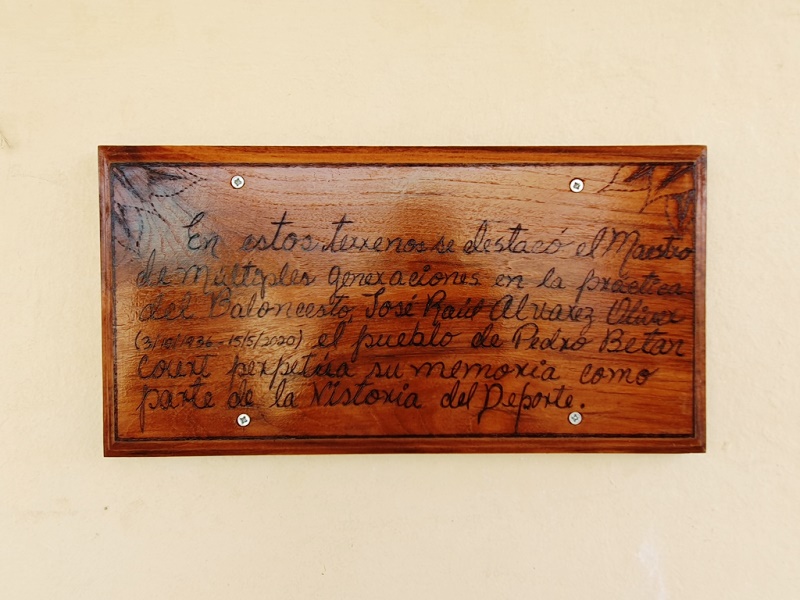 En estos terrenos se destacó el Maestro
de Múltiples generaciones en la práctica
del Baloncesto, José Raúl Alvarez Oliver
(3/10/1936 - 15/5/2020) el pueblo de Pedro Betan
court perpetúa su memoria como
parte de la Historia del Deporte.